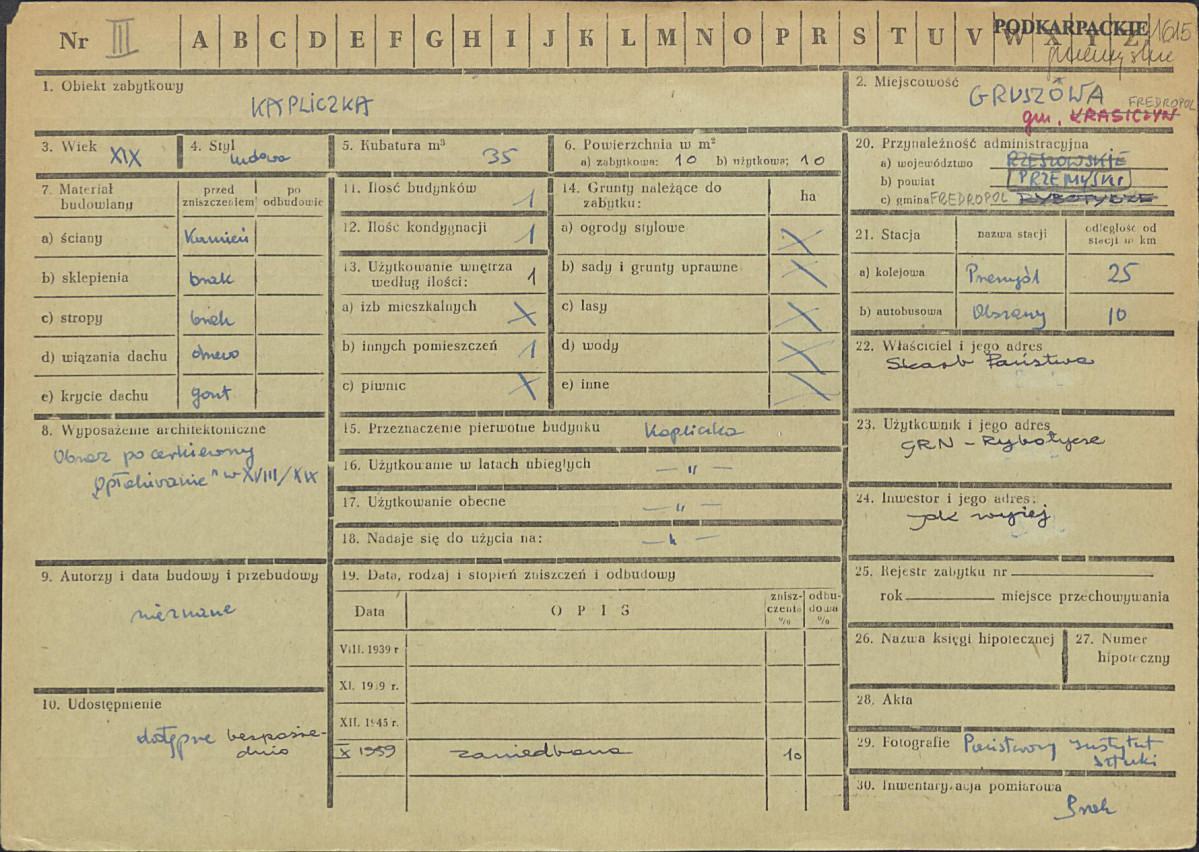 Nr III A B C D E F G H I J K L M N O P R S T U V W X Y Z
PODKARPACKIE 1615
przemyskie
1. Obiekt zabytkowy
KAPLICZKA
2. Miejscowość
GRUSZOWA
gm. KRASICZYN FREDROPOL
3. Wiek XIX
4. Styl ludowa
5. Kubatura m³ 35
6. Powierzchnia w m²
a) zabytkowa: 10 b) użytkowa; 10
7. Materiał budowlany
przed zniszczeniem
po odbudowie
a) ściany Kamień
b) sklepienia brak
c) stropy brak
d) wiązania dachu drewo
e) krycie dachu gont
8. Wyposażenie architektoniczne
Obraz po cerkiewny
"Opłakiwanie" w XVIII/XIX
9. Autorzy i data budowy i przebudowy
nieznane
10. Udostępnienie
dostępne bezpośre-
dnio
11. Ilość budynków 1
12. Ilość kondygnacji 1
13. Użytkowanie wnętrza
według ilości: 1
a) izb mieszkalnych X
b) innych pomieszczeń 1
c) piwnic X
14. Grunty należące do
zabytku: ha
a) ogrody stylowe X
b) sady i grunty uprawne X
c) lasy X
d) wody X
e) inne X
15. Przeznaczenie pierwotne budynku Kapliczka
16. Użytkowanie w latach ubiegłych — " —
17. Użytkowanie obecne — " —
18. Nadaje się do użycia na: — " —
19. Data, rodzaj i stopień zniszczeń i odbudowy
Data
O P I S
znisz-
czenia
%
odbu-
dowa
%
VIII. 1939 r
XI. 1939 r.
XII. 1945 r.
X 1959 zaniedbana 10
20. Przynależność administracyjna
a) województwo RZESZOWSKIE
b) powiat PRZEMYSKI
c) gmina FREDROPOL RYBOTYCZE
21. Stacja
nazwa stacji
odległość od
stacji w km
a) kolejowa Przemyśl 25
b) autobusowa Olszany 10
22. Właściciel i jego adres
Skarb Państwa
23. Użytkownik i jego adres
GRN - Rybotycze
24. Inwestor i jego adres:
jak wyżej
25. Rejestr zabytku nr
rok miejsce przechowywania
26. Nazwa księgi hipotecznej
27. Numer
hipoteczny
28. Akta
29. Fotografie Państwowy Instytut
Sztuki
30. Inwentaryzacja pomiarowa
Brak